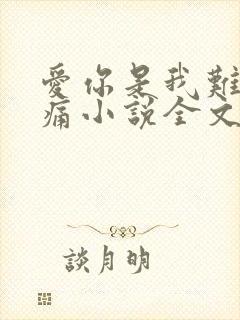 愛你是我難
痛小說全文
談月明